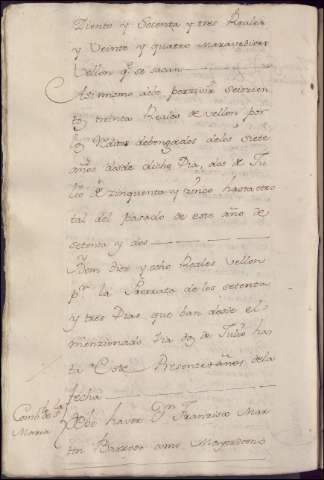 Diento y Setenta y tres Reales
y Veinte y quatro maravedises
Vellon qe. se sacan
Asi mismo debe persivir seiscien
tos treinta Reales de vellon por
los Reditos debengados delos siete
años desde dicho Dia, dos de Ju
lio de zinquenta y zinco hasta otro
tal del pasado de este año de
setenta y dos
Yten diez y ocho Reales Vellon
pr. la Prorrata de los setenta
y tres Dias que ban desde el
menzionado Dia dos de Julio has
ta este Presente año, dela
fecha
Combto. de Sta.
Maria
Debe haver Dn. Francisco Mar
tin Barrero como Mayordomo